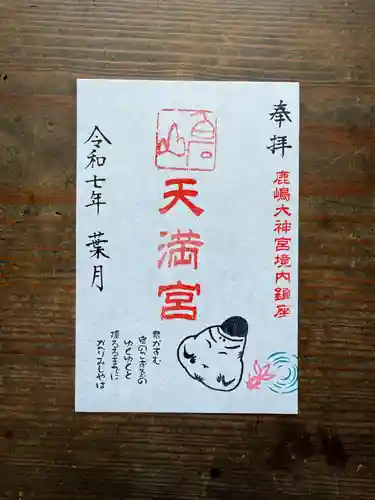 奉拝
鹿嶋大神宮境内鎮座
天満宮
令和七年 葉月
君がすむ
宿のこずゑの
ゆくゆくと
隠るるまでに
かへりみしやは